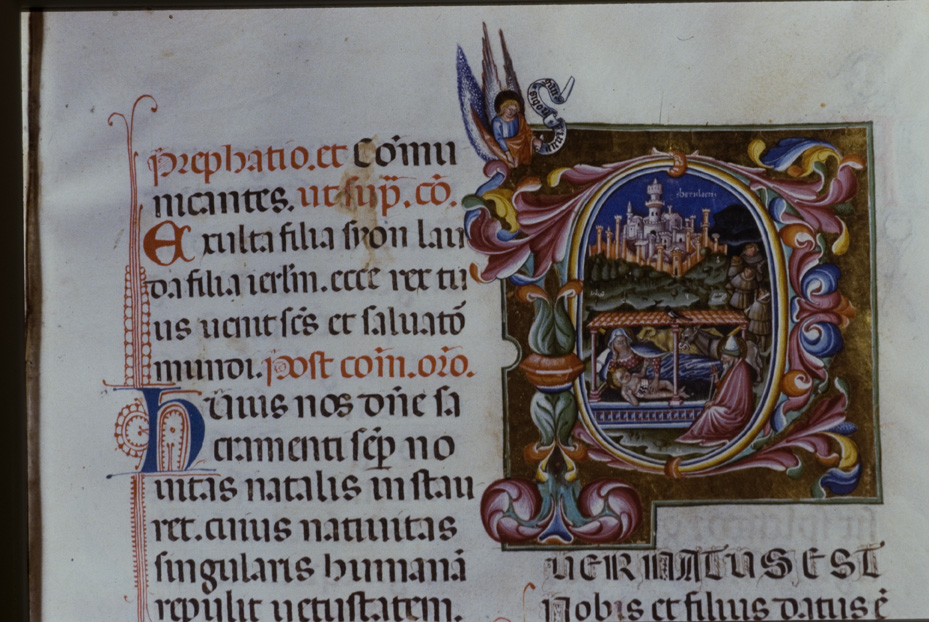 Prephatio. et Cōmu
nicantes. ut sup̄. cō.
Exulta filia syon lau
da filia ierlm. ecce rex tu
us uenit sc̄s et saluatō
mundi. post com̄. or̄o.
Huius nos dn̄e sa
cramenti sēp no
uitas natalis instau
ret. cuius natiuitas
singularis humanā
repulit uetustatem.
bethleem
UER NATUS EST
Nobis et filius datus ē